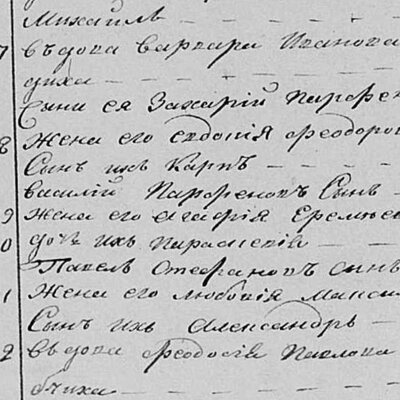 Михаилъ
7 въдова варвара Иванова
диха
Сынъ ея Захарій Парфе
8 Жена его евдокія Феодоро
Сынъ ихъ Карпъ
василій Парфеновъ Сынъ
9 Жена его агафія Еремее
0 дочь ихъ Параскевія
Павелъ Стефановъ сынъ
1 Жена его любовія Макси
Сынъ ихъ Александръ
2 въдова Феодосія Павлова